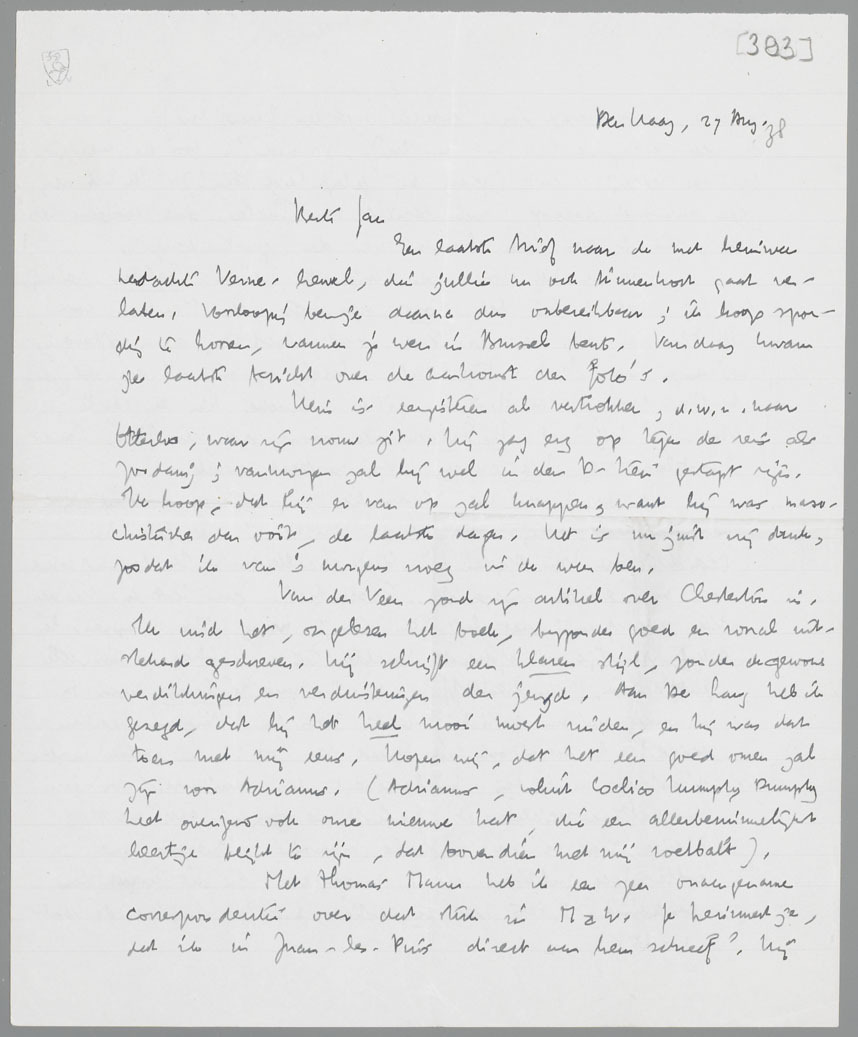 [383]
Den Haag, 27 Aug. 38
Beste Jan
Een laatste brief naar de met heimwee
bedachte Verne-heuvel, die jullie nu ook binnenkort gaat ver-
laten. Voorloopig ben je daarna dus onbereikbaar; ik hoop spoe-
dig te hooren, wanneer je weer in Brussel bent. Vandaag kwam
je laatste bericht over de aankomst der foto's.
is eergisteren al vertrokken, d.w.z. naar
Otterlo, waar zijn vrouw zit. Hij zag erg op tegen de reis als
zoodanig; vanmorgen zal hij wel in den
Ik hoop, dat hij er van op zal knappen, want hij was maso-
chistischer dan ooit, de laatste dagen. Het is nu juist mij
zoodat ik van 's morgens vroeg in de weer ben.
Van der Veen zond zijn artikel over Chesterton in.
Ik vind het, ongelezen het boek, bijzonder goed en vooral uit-
stekend geschreven. Hij schrijft een klaren stijl, zonder de gewone
verdikkingen en verduisteringen der jeugd. Aan De Haag heb ik
gezegd, dat hij het heel mooi moest vinden, en hij was dat
toen met mij eens. Hopen wij, dat het een goed omen zal
zijn voor Adrianus. (Adrianus, voluit Coelico Humphy Dumphy
heet overigens ook onze nieuwe kat, die een allerbeminnelijkst
beestje blijkt te zijn, dat bovendien met mij voetbalt).
Met Thomas Mann heb ik een zeer onaangename
correspondentie over dat stuk in M & W. Je herinnert je,
dat ik in Juan-les-Pins direct aan hem schreef? Hij